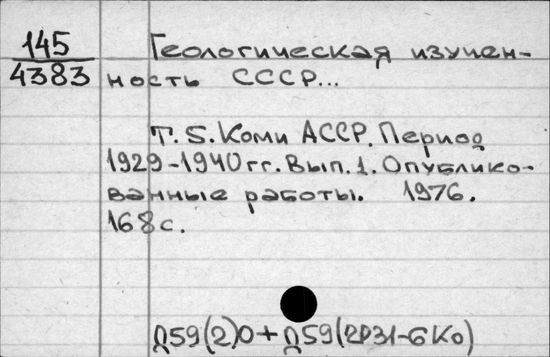 145
4383
Геологическая изучен-
ность СССР...
Т. 5. Коми АССР. Период
1929-1940 гг. Вып. 1. Опублико-
ванные работы. 1976.
168 с.
Д59(2)0 + Д59(2Р31-6Ко)